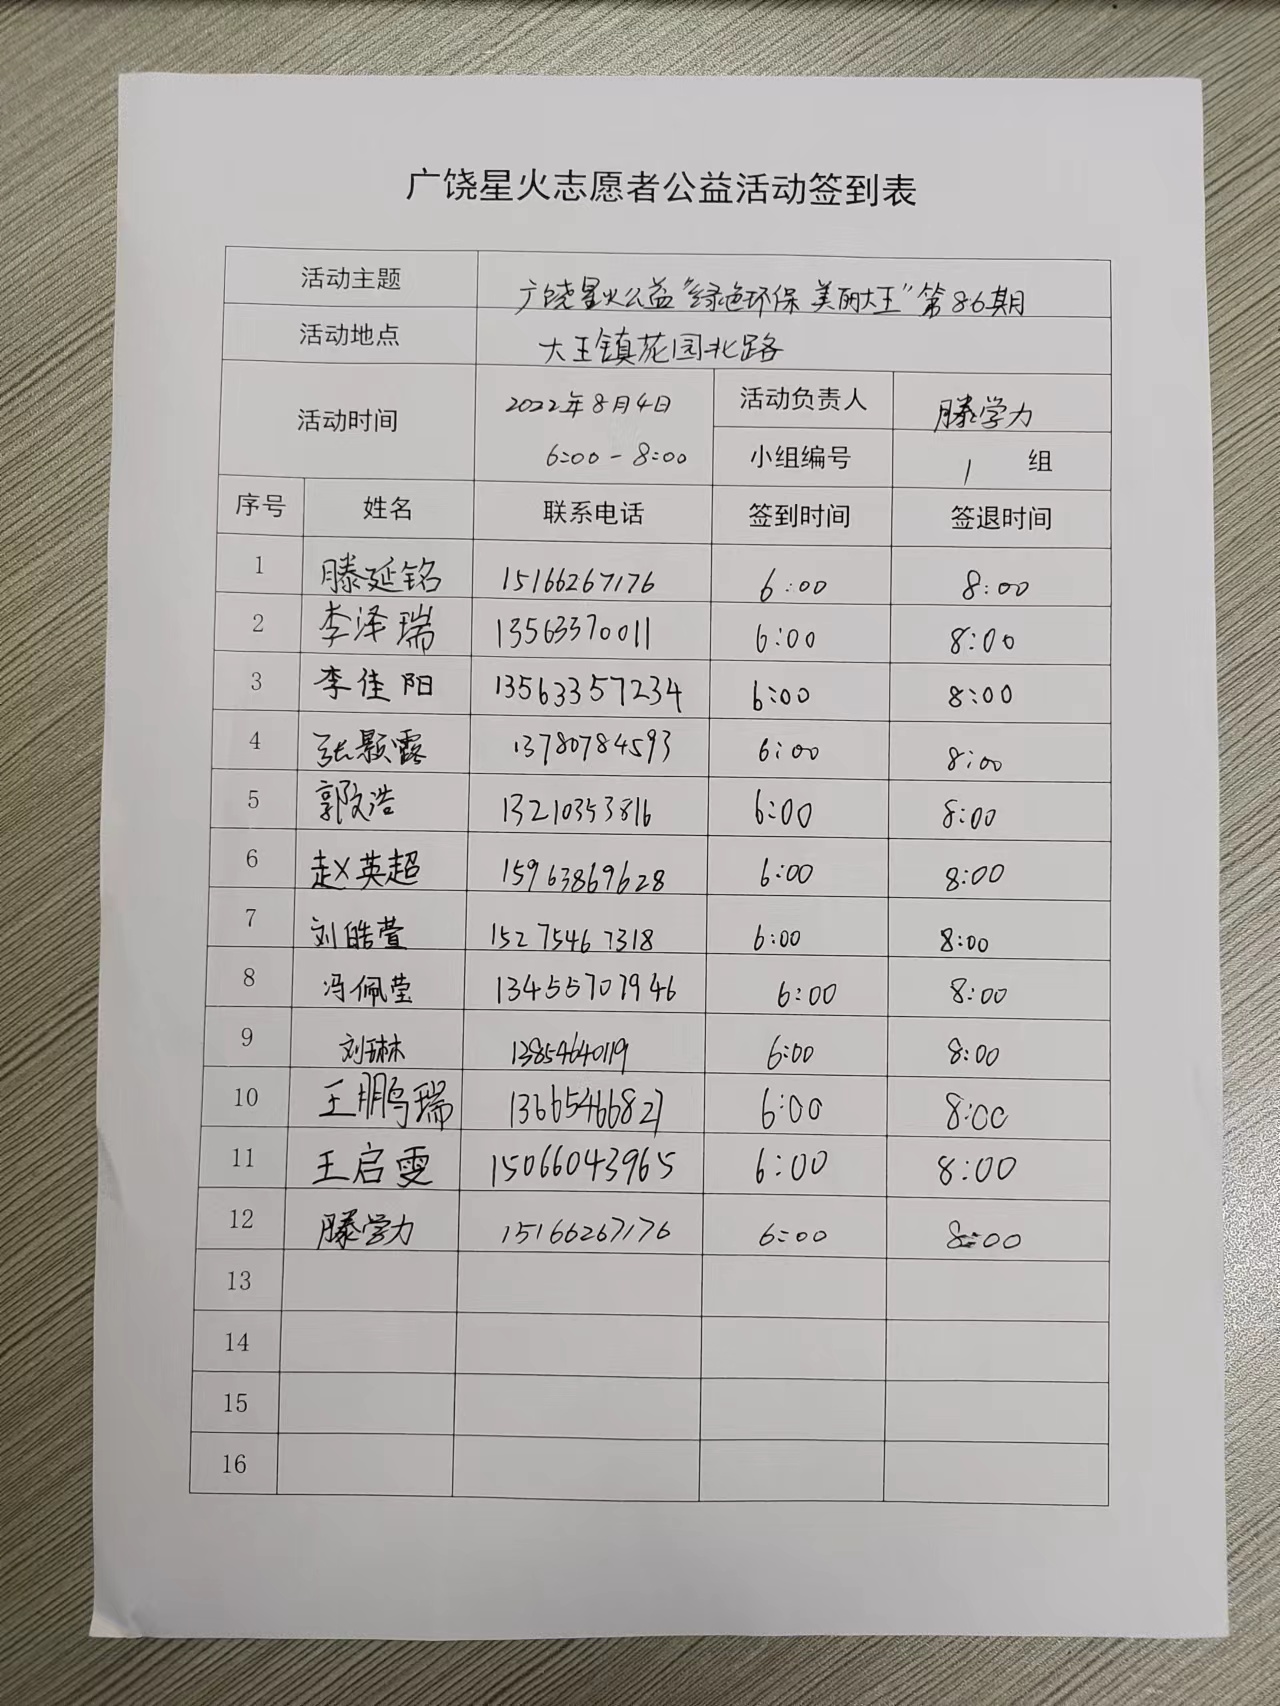 广饶星火志愿者公益活动签到表
活动主题 广饶星火公益"绿色环保 美丽大王"第86期
活动地点 大王镇花园北路
活动时间 2022年8月4日 6:00-8:00 活动负责人 滕学力
小组编号 1 组
序号 姓名 联系电话 签到时间 签退时间
1 滕延铭 15166267176 6:00 8:00
2 李泽瑞 13563370011 6:00 8:00
3 李佳阳 13563357234 6:00 8:00
4 张颢露 13780784593 6:00 8:00
5 郭文浩 13210353816 6:00 8:00
6 赵英超 15963869628 6:00 8:00
7 刘皓萱 15275467318 6:00 8:00
8 冯佩莹 13455707946 6:00 8:00
9 刘琳 13854640119 6:00 8:00
10 王鹏瑞 13665466827 6:00 8:00
11 王启雯 15066043965 6:00 8:00
12 滕学力 15166267176 6:00 8:00
13
14
15
16